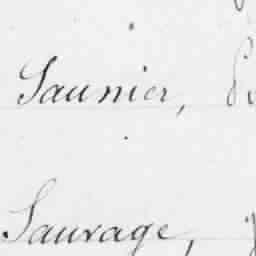 Saunier,
Sauvage,